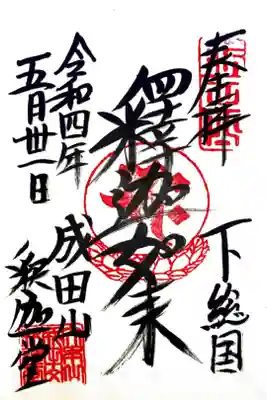 奉拝
下総国
釋迦如来
成田山
釈迦堂
令和四年
五月卅一日